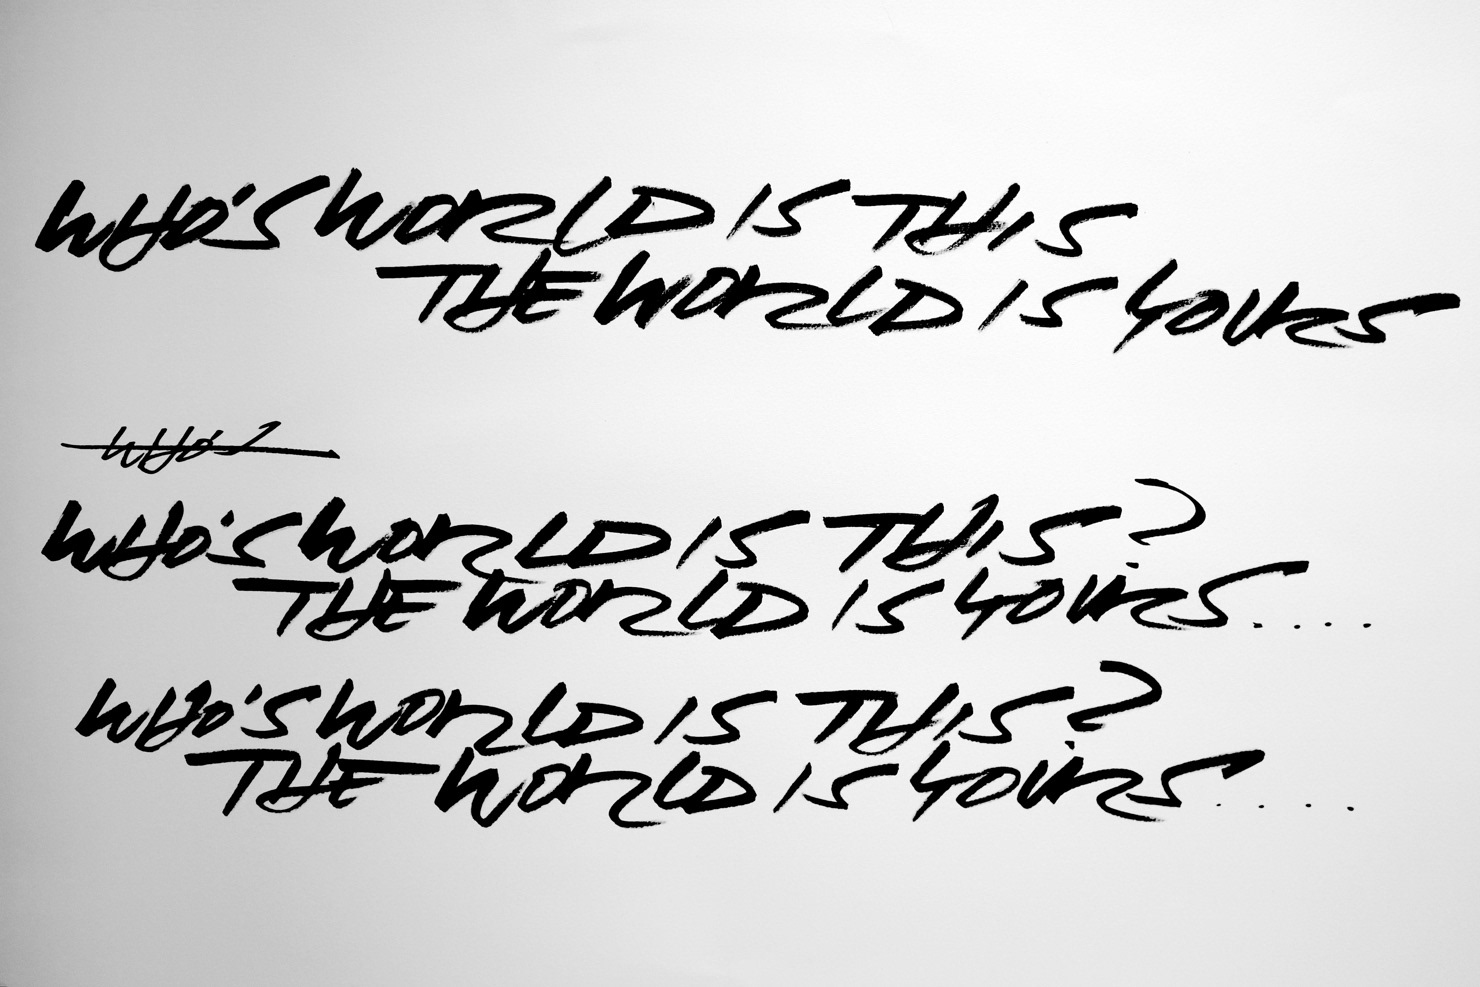 WHO'S WORLD IS THIS
THE WORLD IS YOURS
WHO'S
WHO'S WORLD IS THIS?
THE WORLD IS YOURS....
WHO'S WORLD IS THIS?
THE WORLD IS YOURS....